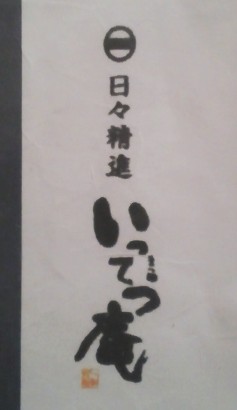 日々精進
いってつ庵
まる